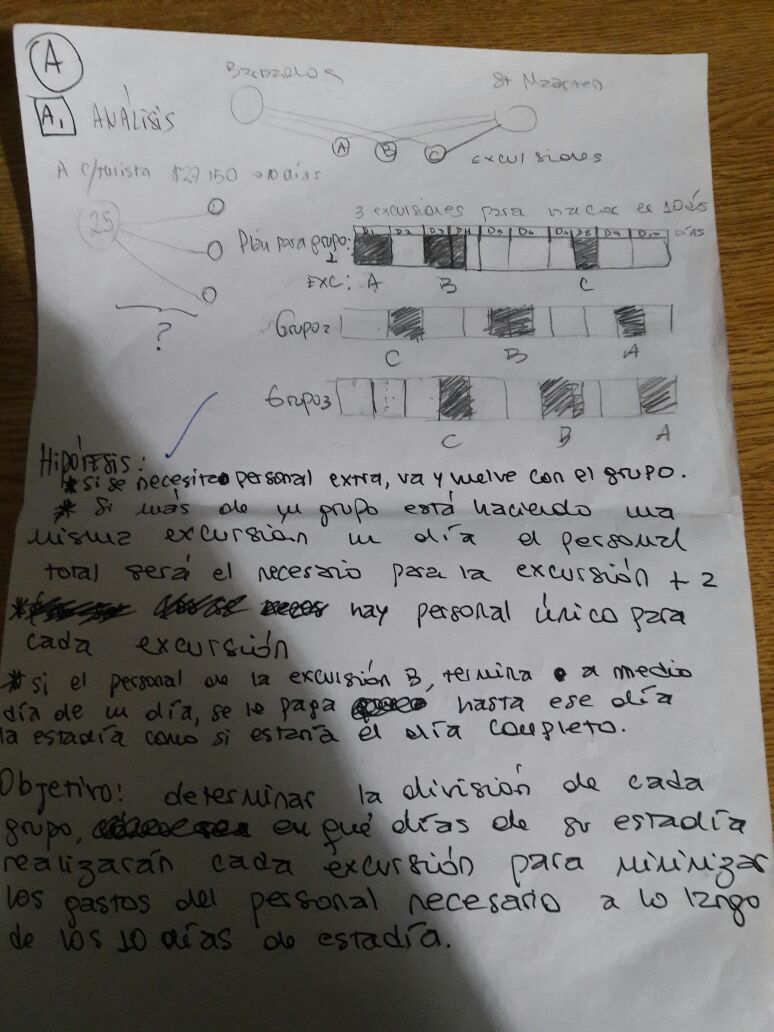 A
A1 ANÁLISIS
Barbados
St Maarten
A B C excursiones
A c/turista $27.150 → 10 días
25
?
3 excursiones para hacer en 10 días
Plan para grupo: 1
D1 D2 D3 D4 D5 D6 D7 D8 D9 D10 DÍAS
EXC: A B C
Grupo 2
C B A
Grupo 3
C B A
HIPÓTESIS:
* si se necesita personal extra, va y vuelve con el grupo.
* Si más de un grupo está haciendo una
misma excursión un día el personal
total será el necesario para la excursión + 2
* hay personal único para
cada excursión
* si el personal de la excursión B, termina a medio
día de un día, se le paga hasta ese día
la estadía como si estaría el día completo.
Objetivo: determinar la división de cada
grupo, en qué días de su estadía
realizarán cada excursión para minimizar
los gastos del personal necesario a lo largo
de los 10 días de estadía.